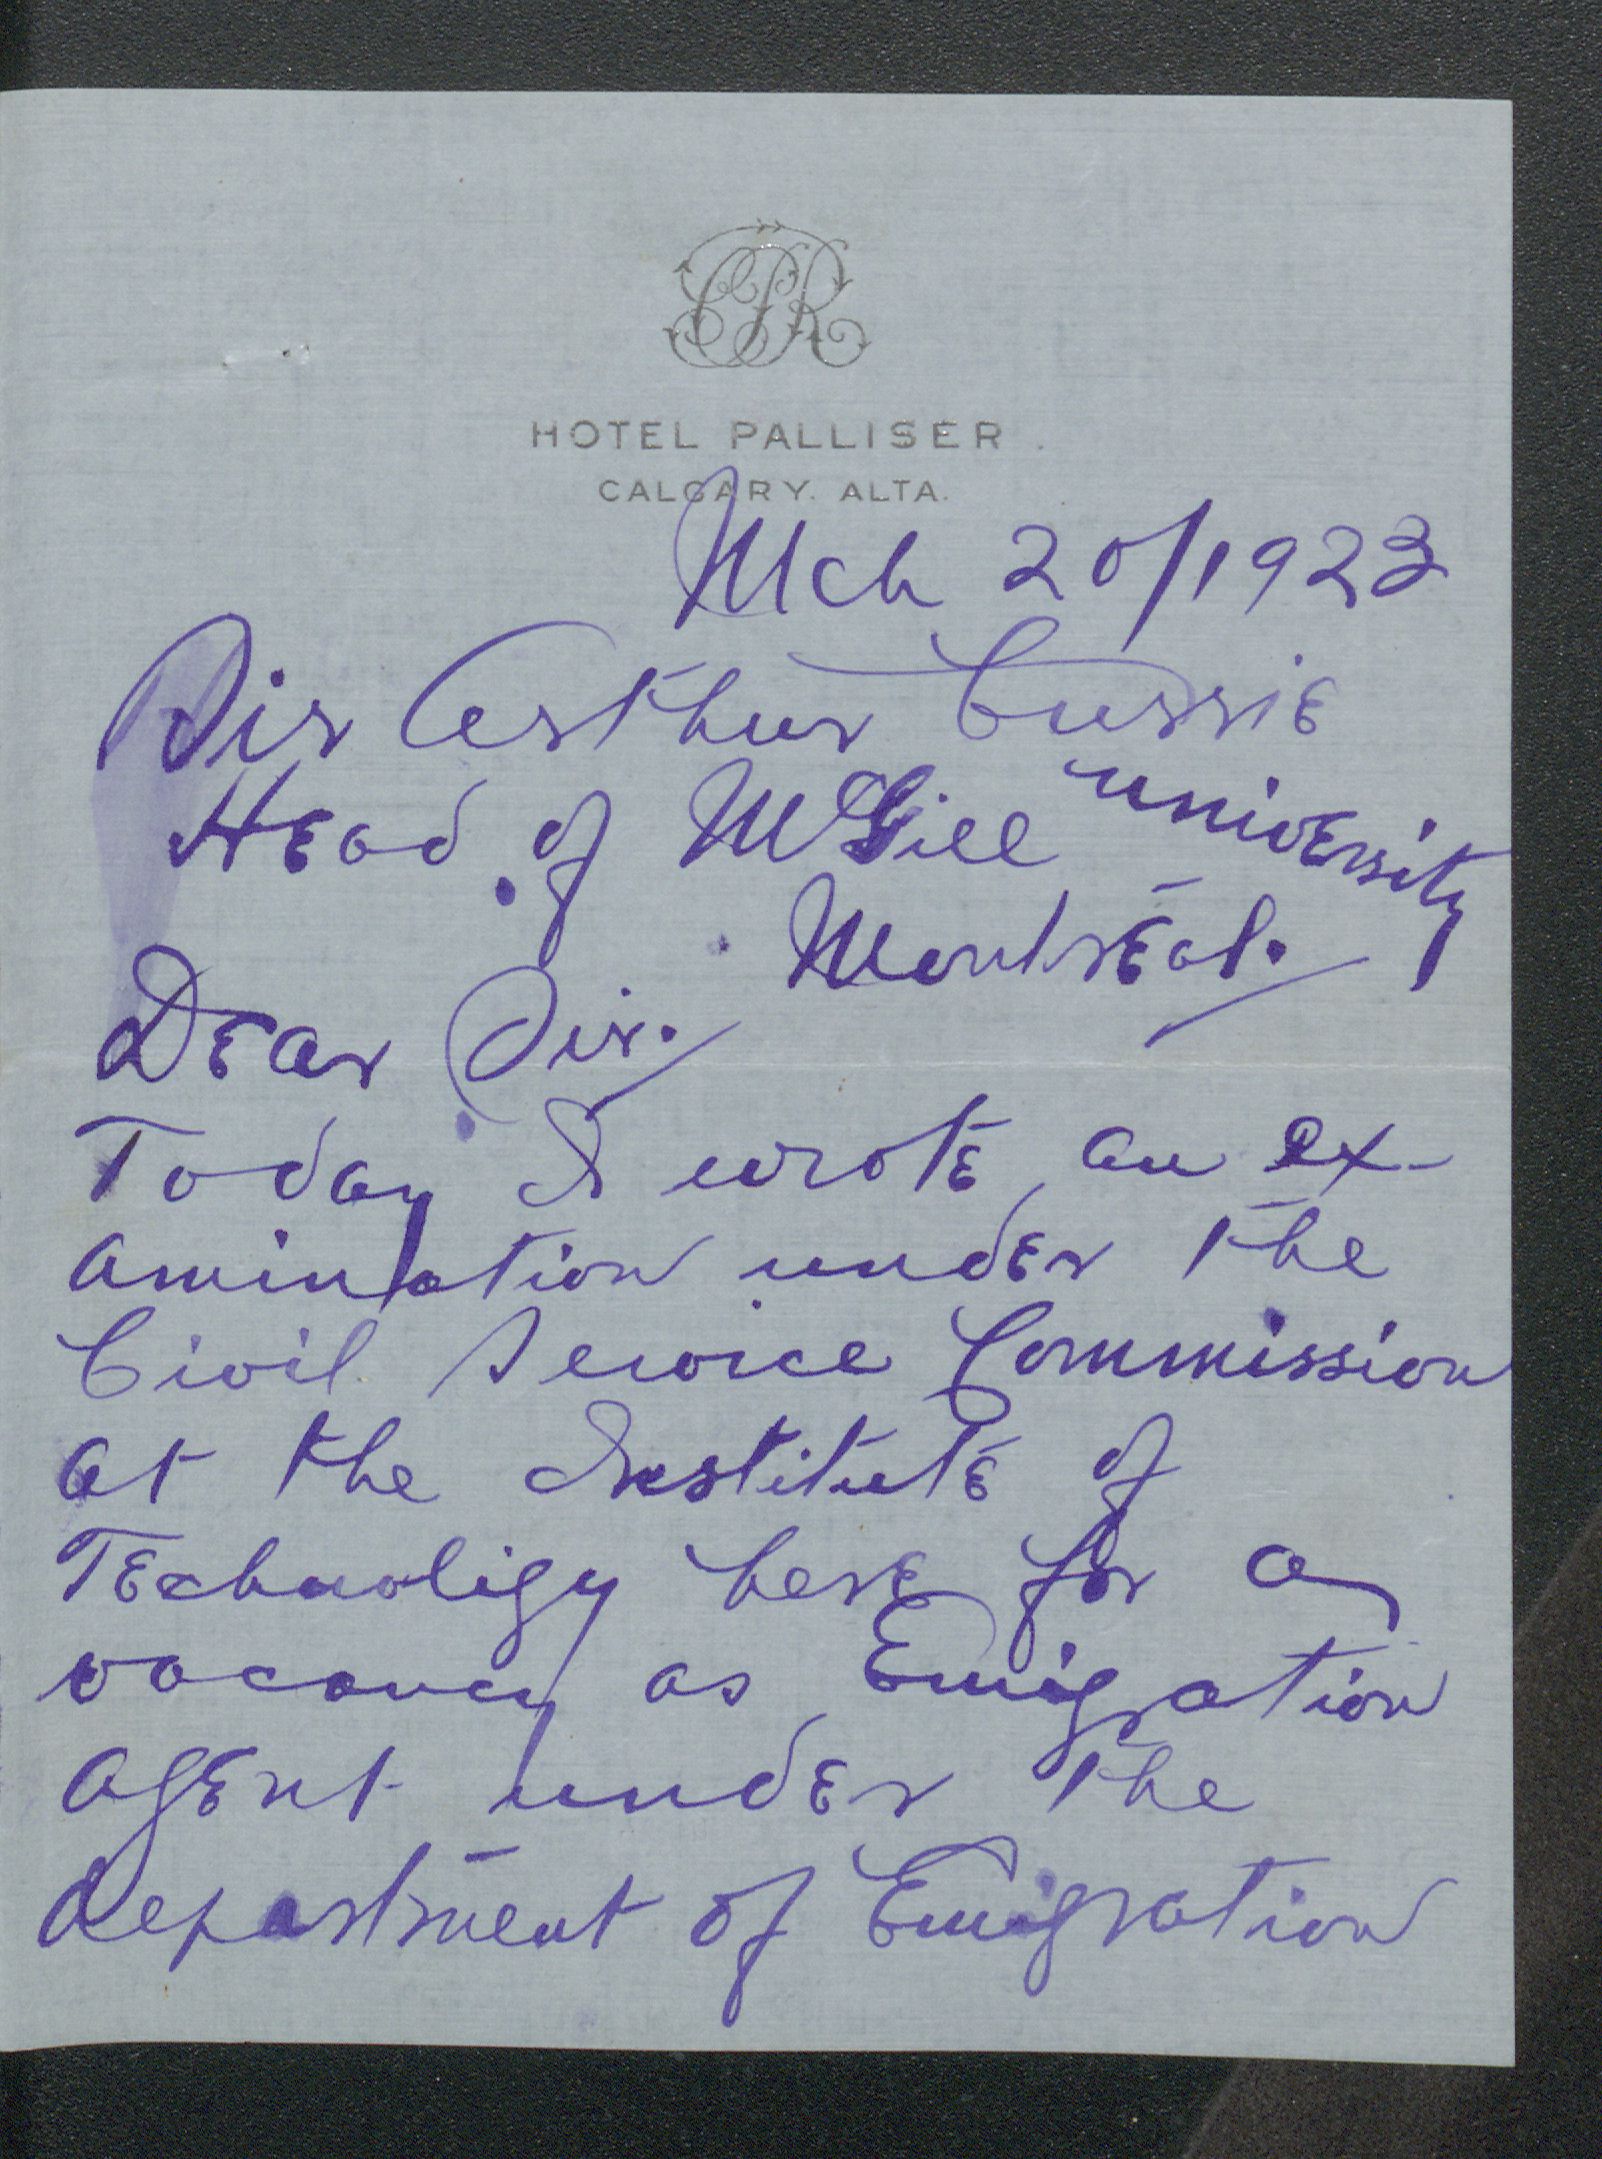 CPR
HOTEL PALLISER.
CALGARY. ALTA.
Mch 20/1923
Sir Arthur Currie
Head of McGill University
Montreal.
Dear Sir.
Today I wrote an ex-
amination under the
Civil Service Commission
at the Institute of
Technoligy here for a
vacancy as Emigration
agent under the
department of Emigration